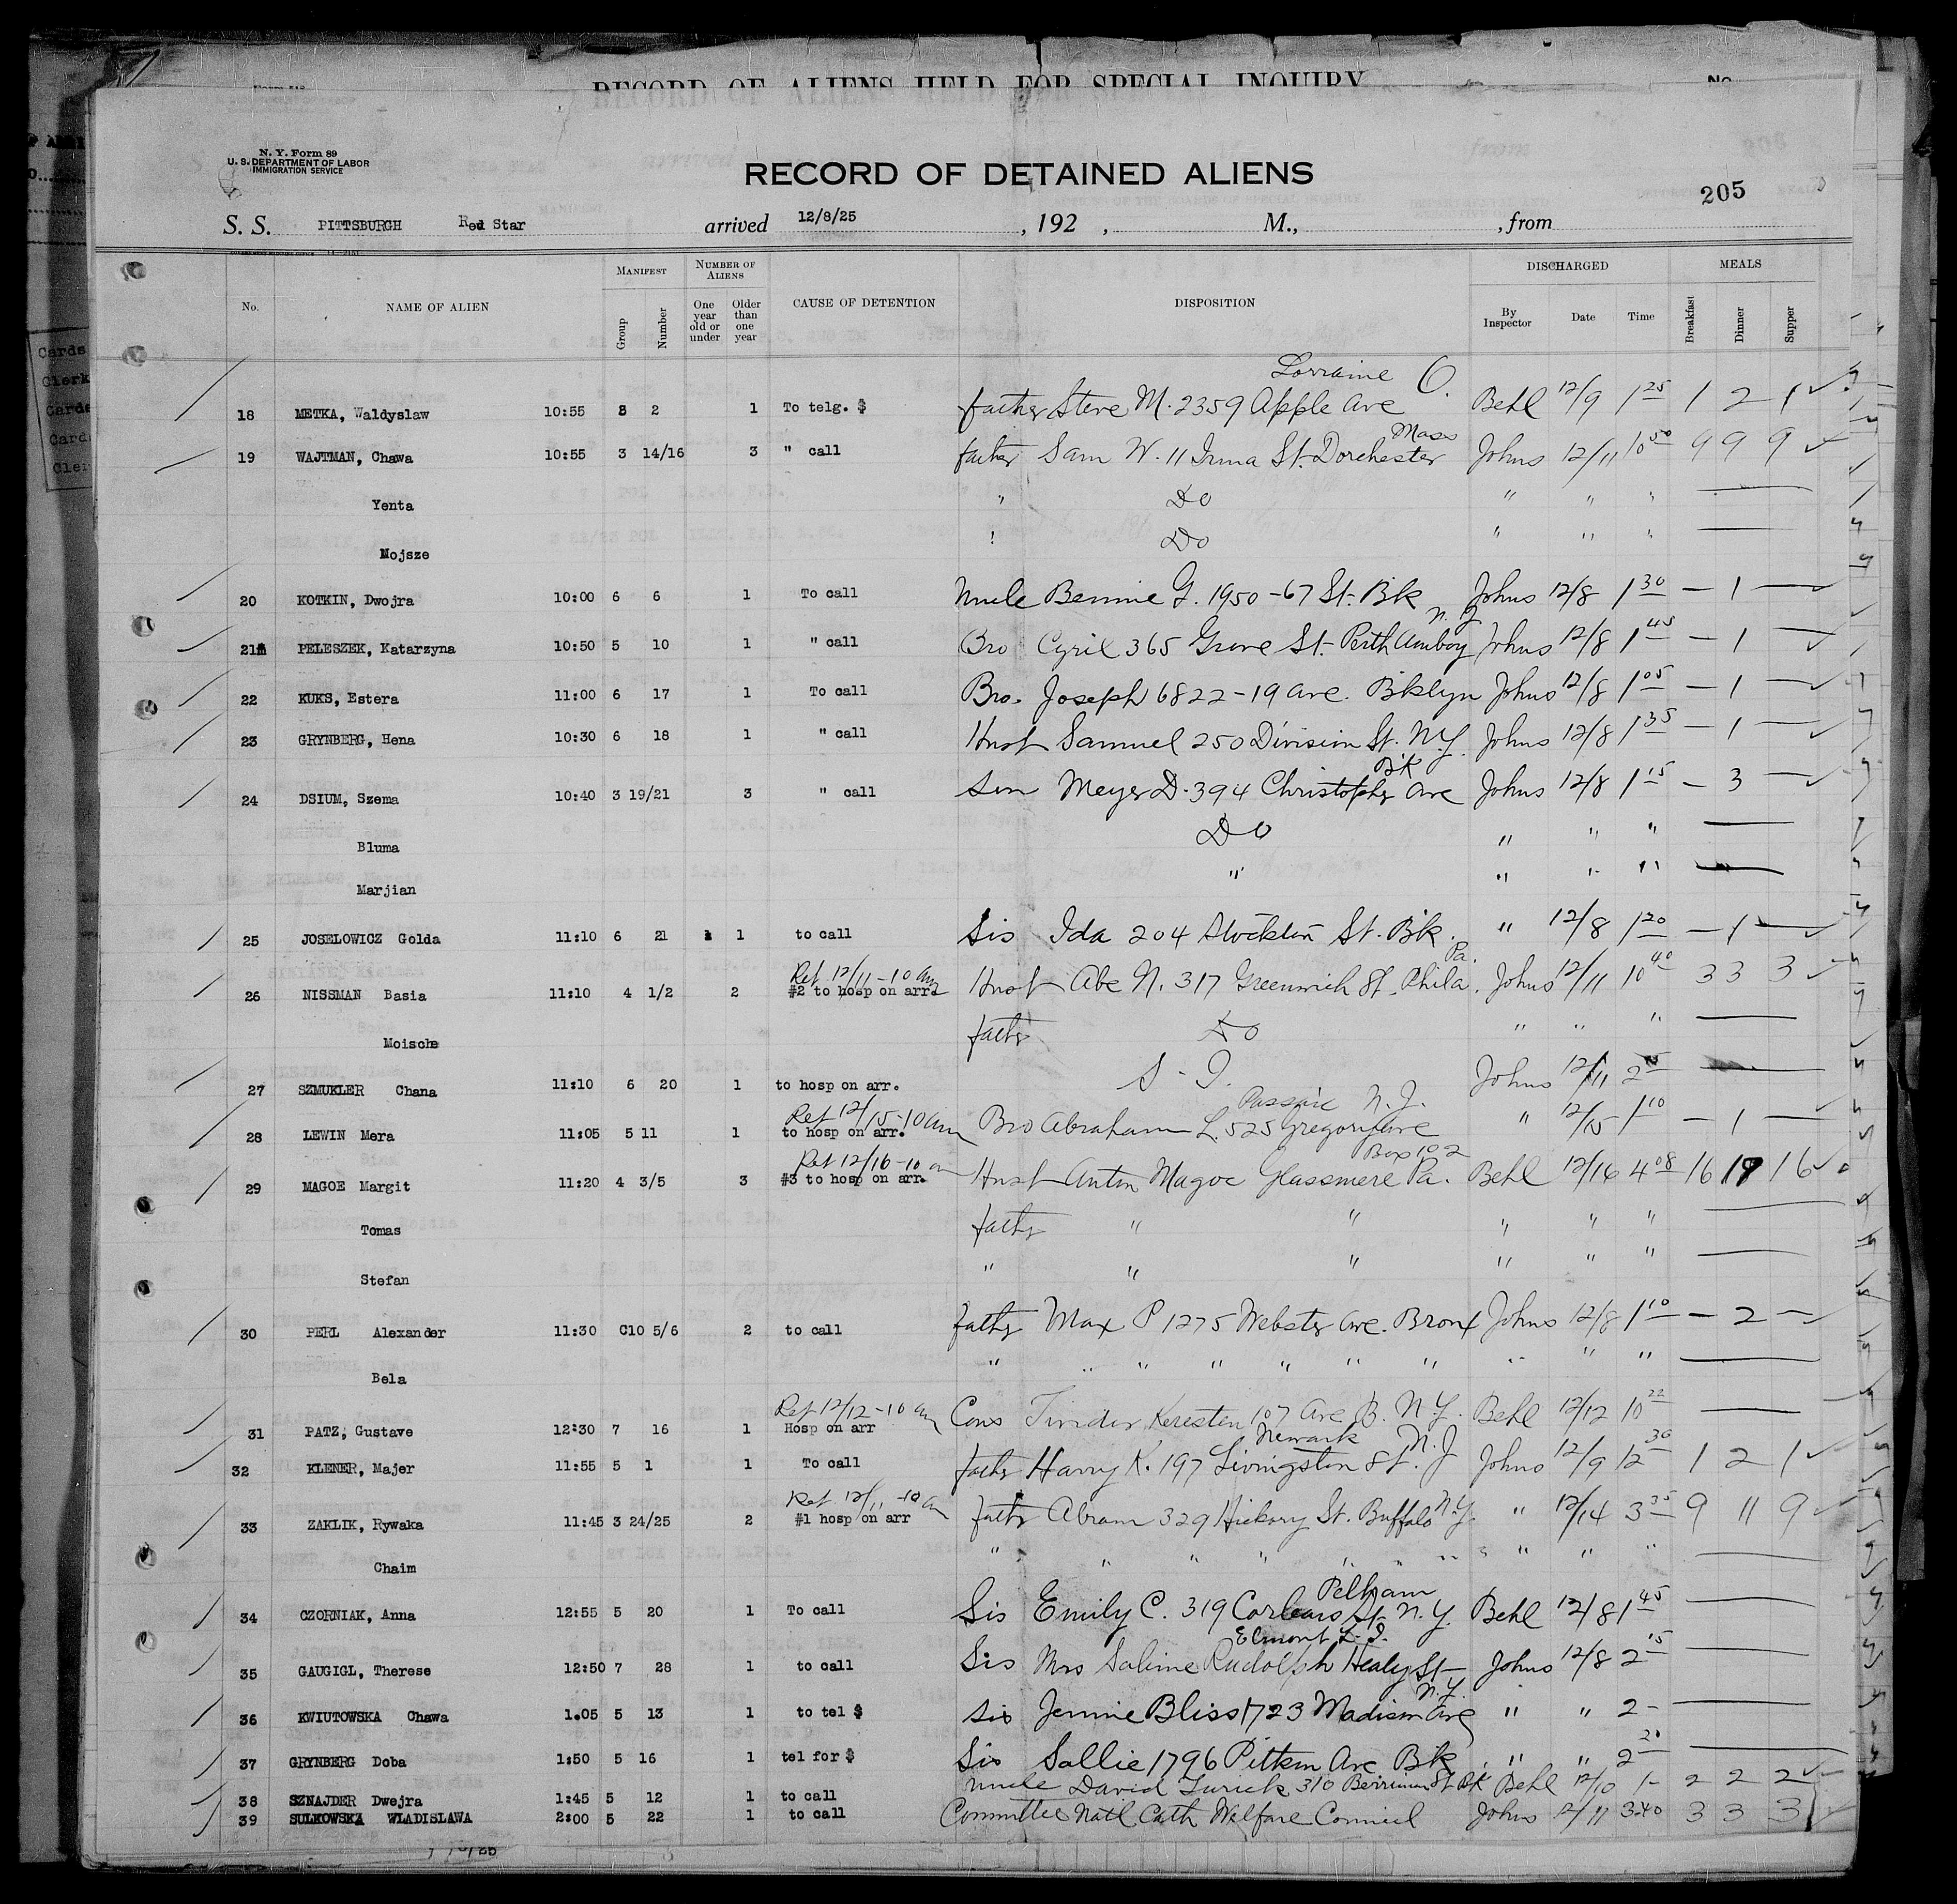 RECORD OF ALIENS HELD FOR SPECIAL INQUIRY
No.
N. Y. Form 89
U. S. DEPARTMENT OF LABOR
IMMIGRATION SERVICE
RECORD OF DETAINED ALIENS
205
S. S. PITTSBURGH Red Star arrived 12/8/25, 192 , M., , from
No. NAME OF ALIEN MANIFEST Group Number NUMBER OF ALIENS One year old or under Older than one year CAUSE OF DETENTION DISPOSITION DISCHARGED By Inspector Date Time MEALS Breakfast Dinner Supper
Lorraine O.
18 METKA, Waldyslaw 10:55 8 2 1 To telg. $ father Steve M. 2359 Apple Ave Behl 12/9 1 25 1 2 1
Mass
19 WAJTMAN, Chawa 10:55 3 14/16 3 " call father Sam W. 11 Irma St. Dorchester Johns 12/11 10 50 9 9 9
Yenta " Do " " "
Mojsze " Do " " "
20 KOTKIN, Dwojra 10:00 6 6 1 To call Uncle Bennie G. 1950-67 St. Bk Johns 12/8 1 30 — 1 —
N. J.
21 PELESZEK, Katarzyna 10:50 5 10 1 " call Bro Cyril 365 Grove St. Perth Amboy Johns 12/8 1 45 — 1 —
22 KUKS, Estera 11:00 6 17 1 To call Bro. Joseph 6822-19 Ave. Bklyn Johns 12/8 1 05 — 1 —
23 GRYNBERG, Hena 10:30 6 18 1 " call Husb Samuel 250 Division St. N.Y. Johns 12/8 1 35 — 1 —
Bk
24 DSIUM, Szema 10:40 3 19/21 3 " call Son Meyer D. 394 Christopher Ave Johns 12/8 1 15 — 3 —
Bluma Do " " "
Marjian " " " "
25 JOSELOWICZ Golda 11:10 6 21 1 to call Sis Ida 204 Stockton St. Bk. " 12/8 1 20 — 1 —
Ret 12/11-10 am Pa.
26 NISSMAN Basia 11:10 4 1/2 2 #2 to hosp on arr. Husb Abe N. 317 Greenwich St. Phila. Johns 12/11 10 40 3 3 3
Moische father Do " " "
27 SZMUKLER Chana 11:10 6 20 1 to hosp on arr. S. I. Johns 12/11 2
Ret 12/15-10 am Passaic N. J.
28 LEWIN Mera 11:05 5 11 1 to hosp on arr. Bro Abraham L. 525 Gregory Ave " 12/15 1 10 — 1 —
Ret 12/16-10 am Box 102
29 MAGOE Margit 11:20 4 3/5 3 #3 to hosp on arr. Husb Anton Magoc Glassmere Pa. Behl 12/16 4 08 16 19 16
Tomas father " " " " "
Stefan " " " " " "
30 PERL Alexander 11:30 C10 5/6 2 to call father Max P 1275 Webster Ave. Bronx Johns 12/8 1 10 — 2 —
Bela " " " " " " " " " "
Ret 12/12-10 am
31 PATZ, Gustave 12:30 7 16 1 Hosp on arr Cous 107 Ave B. N. Y. Behl 12/12 10 22
Newark N. J
32 KLENER, Majer 11:55 5 1 1 To call father Harry K. 197 Livingston St. Johns 12/9 12 30 1 2 1
Ret 12/11-10 am
33 ZAKLIK, Rywaka 11:45 3 24/25 2 #1 hosp on arr father Abram 329 Hickory St. Buffalo N.Y. " 12/14 3 35 9 11 9
Chaim " " " " " " " " " "
Pelham
34 CZORNIAK, Anna 12:55 5 20 1 To call Sis Emily C. 319 Corlears St. N. Y. Behl 12/8 1 45
Elmont L. I.
35 GAUGIGL, Therese 12:50 7 28 1 to call Sis Mrs Sabine Rudolph Healy St Johns 12/8 2 15
N. Y.
36 KWIUTOWSKA Chawa 1.05 5 13 1 to tel $ Sis Jennie Bliss 1723 Madison Ave " " 2-
37 GRYNBERG Doba 1:50 5 16 1 tel for $ Sis Sallie 1796 Pitkin Ave Bk " " 2 20
38 SZNAJDER Dwejra 1:45 5 12 1 to call Uncle David 310 Berriman St Bk Behl 12/10 1- 2 2 2
39 SULKOWSKA WLADISLAWA 2:00 5 22 1 to call Committee Natl Cath Welfare Council Johns 12/11 3.40 3 3 3